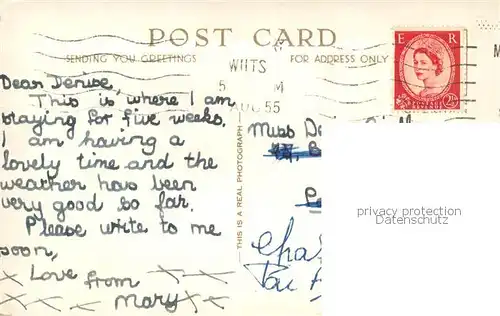 POST CARD
SENDING YOU GREETINGS
FOR ADDRESS ONLY
WILTS
5 M
AUG 55
E R
2½
Dear Denise,
This is where I am
staying for five weeks.
I am having a
lovely time and the
weather has been
very good so far.
Please write to me
soon,
x Love from x x x
x x x. Mary x x
THIS IS A REAL PHOTOGRAPH
Miss De
privacy protection
Datenschutz